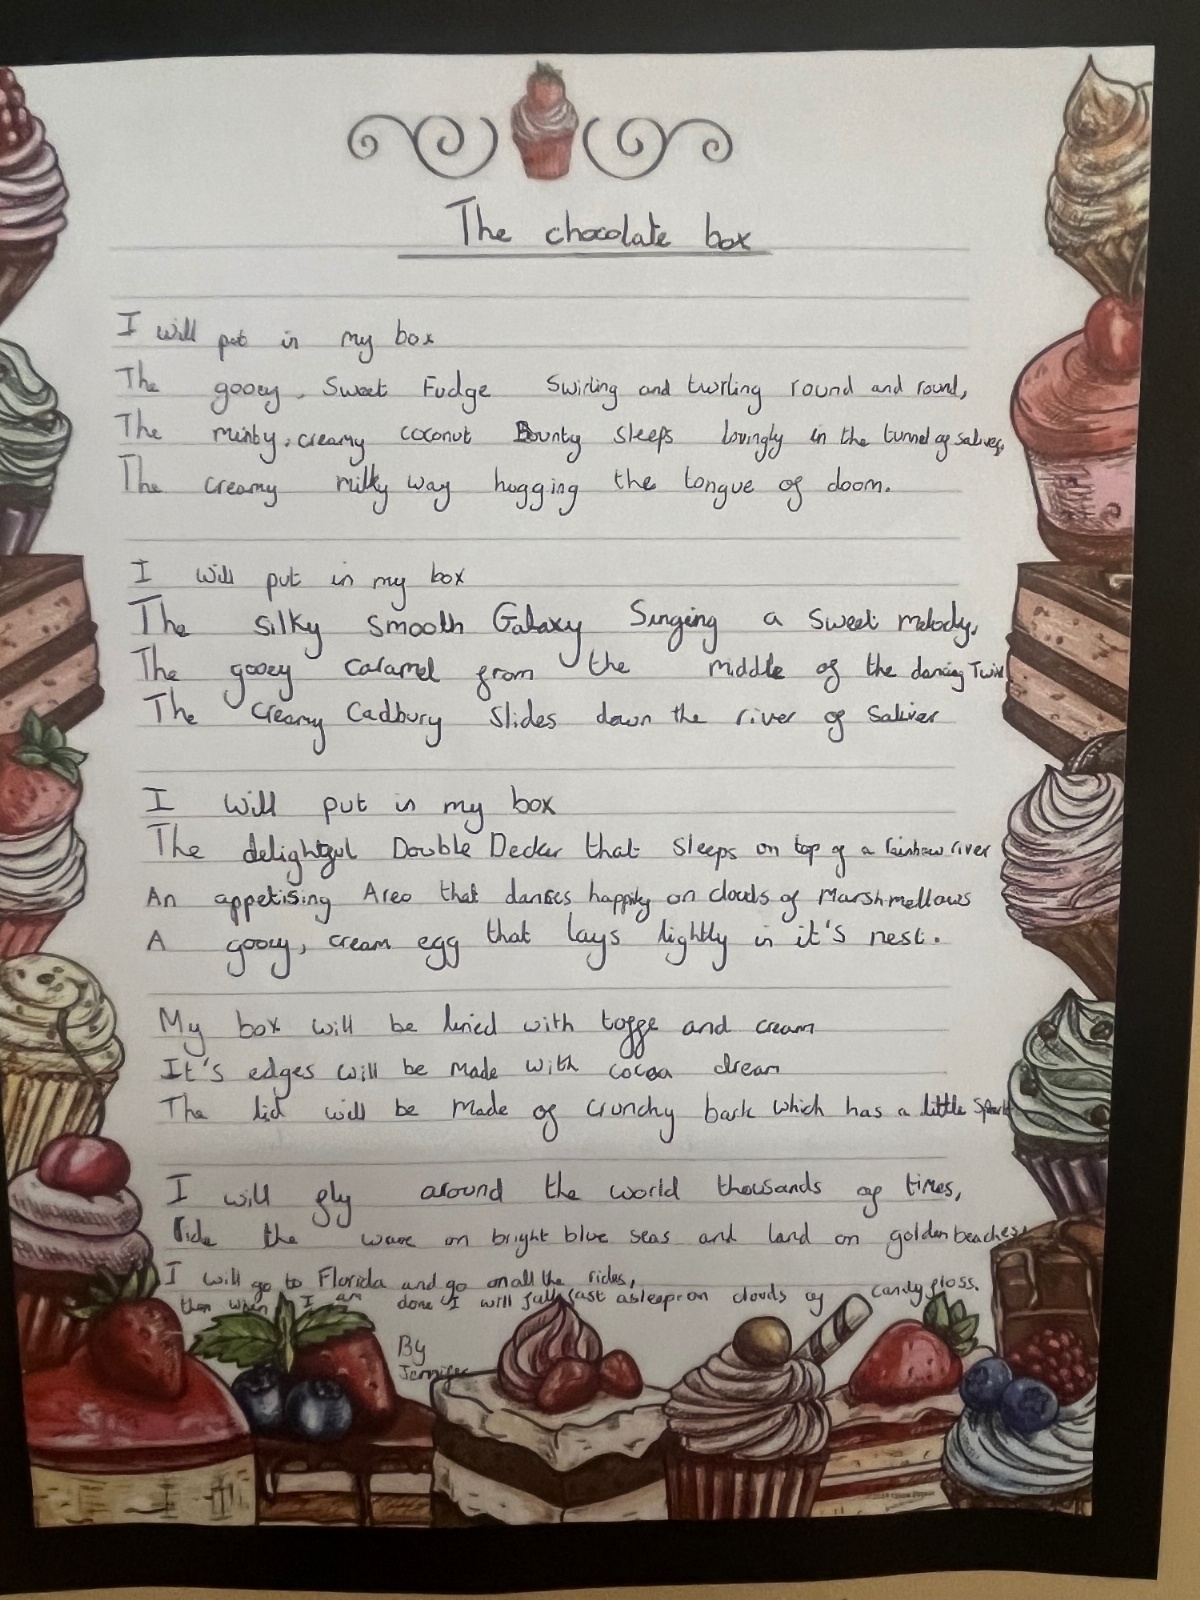 The chocolate box
I will put in my box
The gooey, Sweet Fudge Swirling and twirling round and round,
The minty, creamy coconut Bounty sleeps lovingly in the tunnel of saliver,
The creamy milky way hugging the tongue of doom.
I will put in my box
The silky smooth Galaxy Singing a sweet melody,
The gooey caramel from the middle of the dancing Twix
The creamy Cadbury slides down the river of saliver
I will put in my box
The delightful Double Decker that sleeps on top of a rainbow river
An appetising Areo that danses happily on clouds of Marshmellows
A gooey, cream egg that lays lightly in it's nest.
My box will be lined with toffe and cream
It's edges will be made with cocoa dream
The lid will be made of crunchy bark which has a little
I will fly around the world thousands of times,
Ride the wave on bright blue seas and land on golden beaches,
I will go to Florida and go on all the rides,
then when I am done I will fall fast asleep on clouds of candy floss.
By
Jennifer